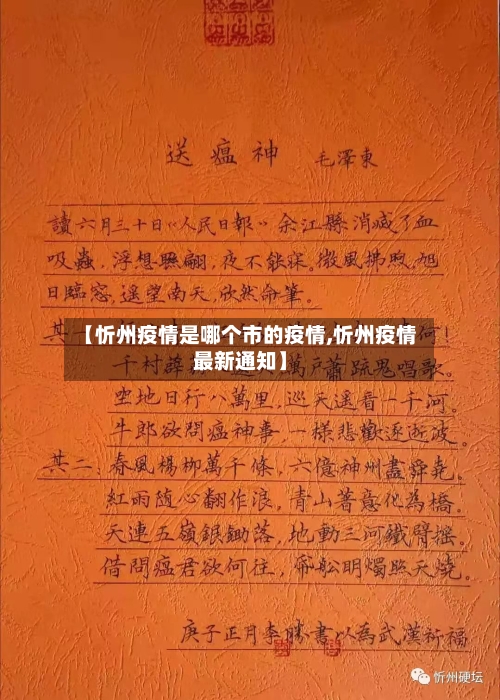 送瘟神 毛澤東
讀六月三十日《人民日報》余江縣消滅了血
吸蟲，浮想聯翩，夜不能寐。微風拂煦，旭
日臨窗，遙望南天，欣然命筆。
其一 何！
【忻州疫情是哪个市的疫情,忻州疫情
最新通知】
千村薜 萬戶蕭疏鬼唱歌。
空地日行八萬里，巡天遙 一千河。
牛郎欲問瘟神事，一樣悲歡逐逝波。
其二、春風楊柳萬千條，六億神州盡舜堯。
紅雨随心翻作浪，青山著意化為橋。
天連五嶺銀鋤落，地動三河鐵臂搖。
借問瘟君欲何往，紙船明燭照天燒。
庚子正月李勝書以為武漢祈福
忻州硬坛